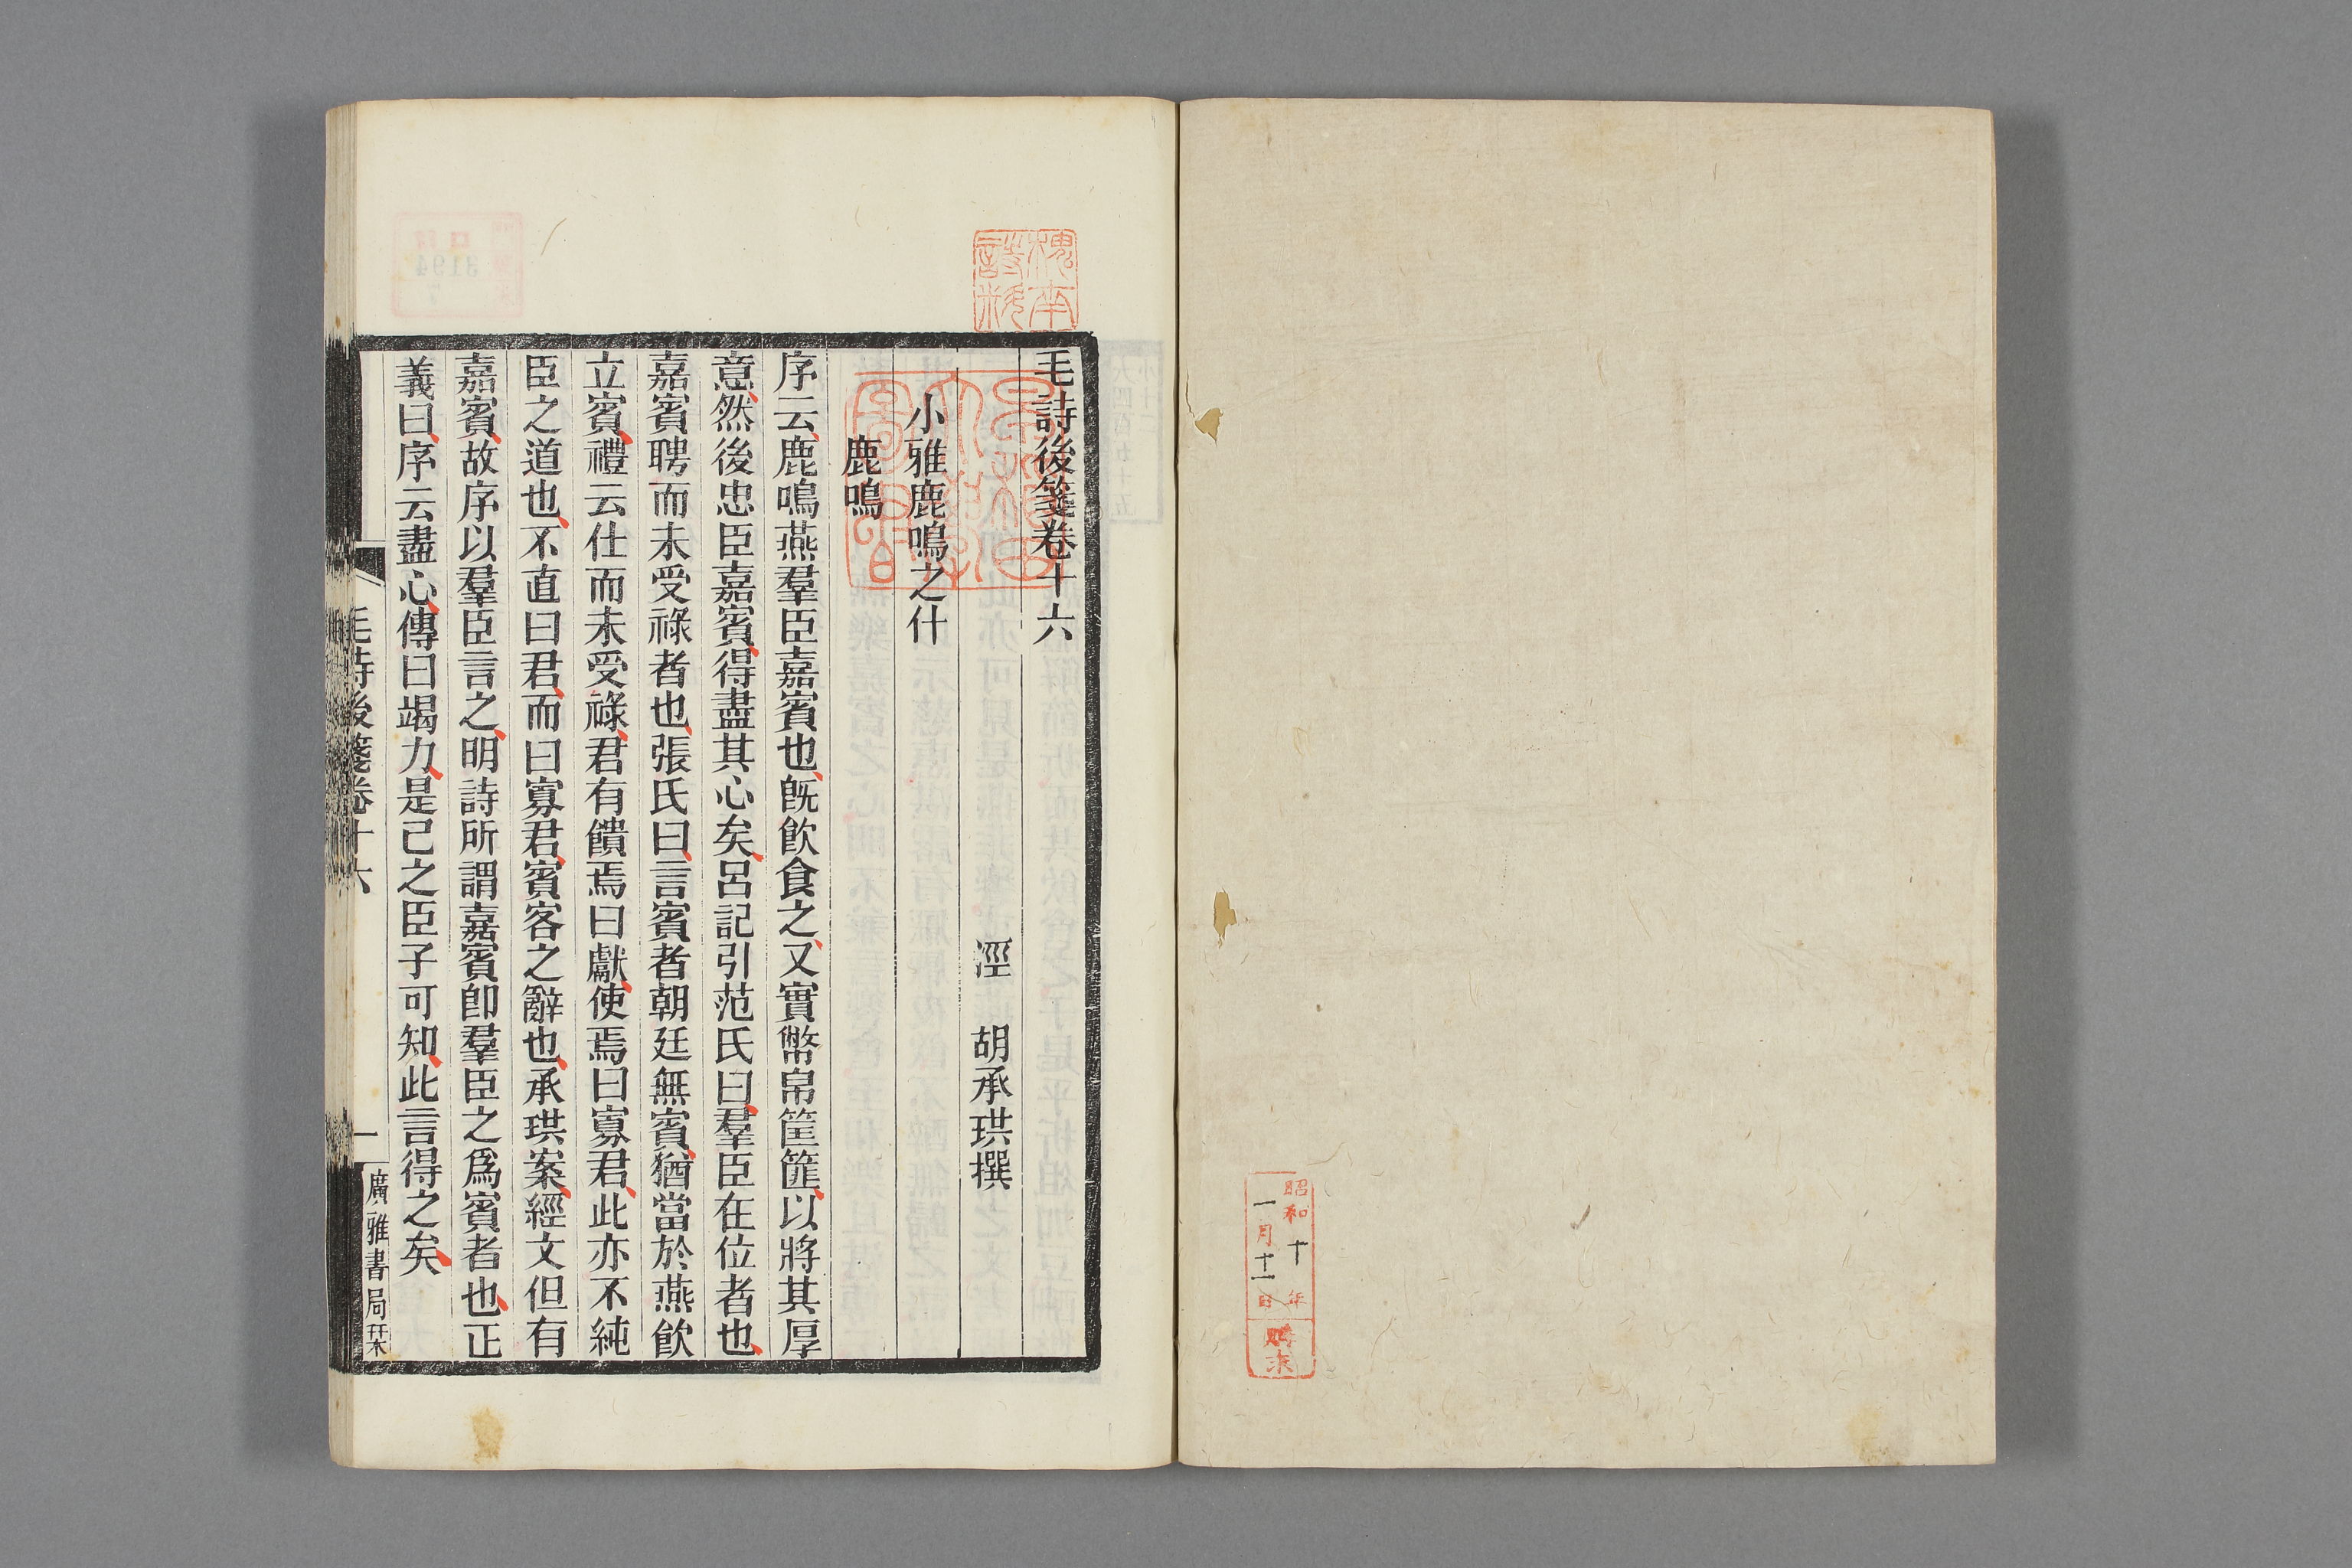 昭和十年
一月十一日
購求
毛詩後箋卷十六
涇　胡承珙撰
小雅鹿鳴之什
鹿鳴
序云鹿鳴燕羣臣嘉賓也旣飮食之又實幣帛筐篚以將其厚
意然後忠臣嘉賓得盡其心矣呂記引范氏曰羣臣在位者也
嘉賓聘而未受祿者也張氏曰言賓者朝廷無賓猶當於燕飮
立賓禮云仕而未受祿君有饋焉曰獻使焉曰寡君此亦不純
臣之道也不直曰君而曰寡君賓客之辭也承珙案經文但有
嘉賓故序以羣臣言之明詩所謂嘉賓卽羣臣之爲賓者也正
義曰序云盡心傳曰竭力是己之臣子可知此言得之矣
毛詩後箋卷十六
一
廣雅書局栞